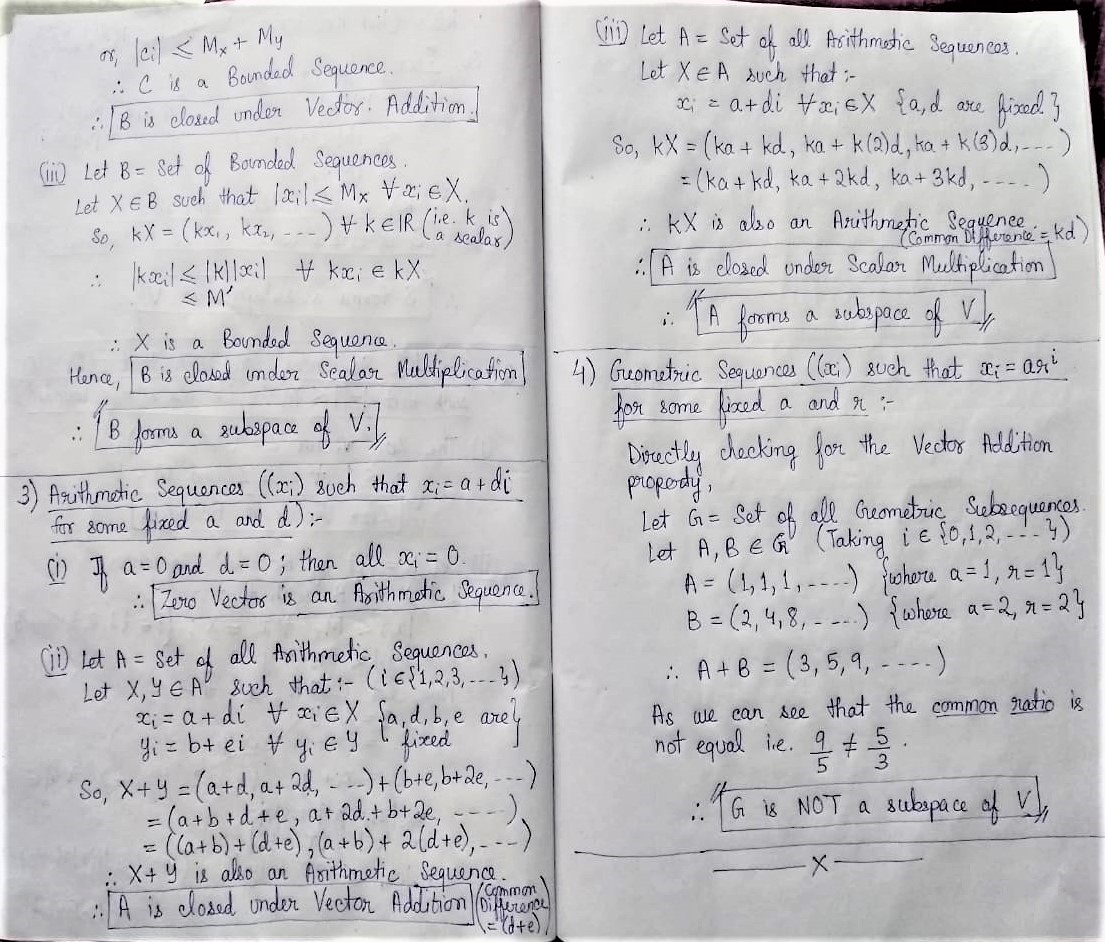 or, |ci| ≤ Mx + My
∴ C is a Bounded Sequence.
∴ B is closed under Vector Addition.
(iii) Let B = Set of Bounded Sequences.
Let X ∈ B such that |xi| ≤ Mx ∀ xi ∈ X.
So, kX = (kx1, kx2, ----) ∀ k ∈ IR (i.e. k is a scalar)
∴ |kxi| ≤ |k||xi| ∀ kxi ∈ kX
≤ M'
∴ X is a Bounded Sequence.
Hence, B is closed under Scalar Multiplication
∴ B forms a subspace of V.
3) Arithmetic Sequences ((xi) such that xi = a + di
for some fixed a and d) :-
(i) If a=0 and d=0 ; then all xi = 0.
∴ Zero Vector is an Arithmetic Sequence.
(ii) Let A = Set of all Arithmetic Sequences.
Let X, Y ∈ A such that :- (i ∈ {1,2,3, ---- })
xi = a + di ∀ xi ∈ X {a, d, b, e are
yi = b + ei ∀ yi ∈ Y fixed}
So, X+Y = (a+d, a+2d, ----) + (b+e, b+2e, ---)
= (a+b+d+e, a+2d+b+2e, ----)
= ((a+b)+(d+e), (a+b)+2(d+e), ---)
∴ X+Y is also an Arithmetic Sequence.
∴ A is closed under Vector Addition (Common Difference = (d+e))
(iii) Let A = Set of all Arithmetic Sequences.
Let X ∈ A such that :-
xi = a + di ∀ xi ∈ X {a, d are fixed}
So, kX = (ka + kd, ka + k(2)d, ka + k(3)d, ----)
= (ka + kd, ka + 2kd, ka + 3kd, -----)
∴ kX is also an Arithmetic Sequence
(Common Difference = kd)
∴ A is closed under Scalar Multiplication
∴ A forms a subspace of V
4) Geometric Sequences ((xi) such that xi = ar^i
for some fixed a and r :-
Directly checking for the Vector Addition
property,
Let G = Set of all Geometric Subsequences.
Let A, B ∈ G (Taking i ∈ {0,1,2, ---- })
A = (1, 1, 1, -----) {where a=1, r=1}
B = (2, 4, 8, -----) {where a=2, r=2}
∴ A + B = (3, 5, 9, -----)
As we can see that the common ratio is
not equal i.e. 9/5 ≠ 5/3.
∴ G is NOT a subspace of V
X